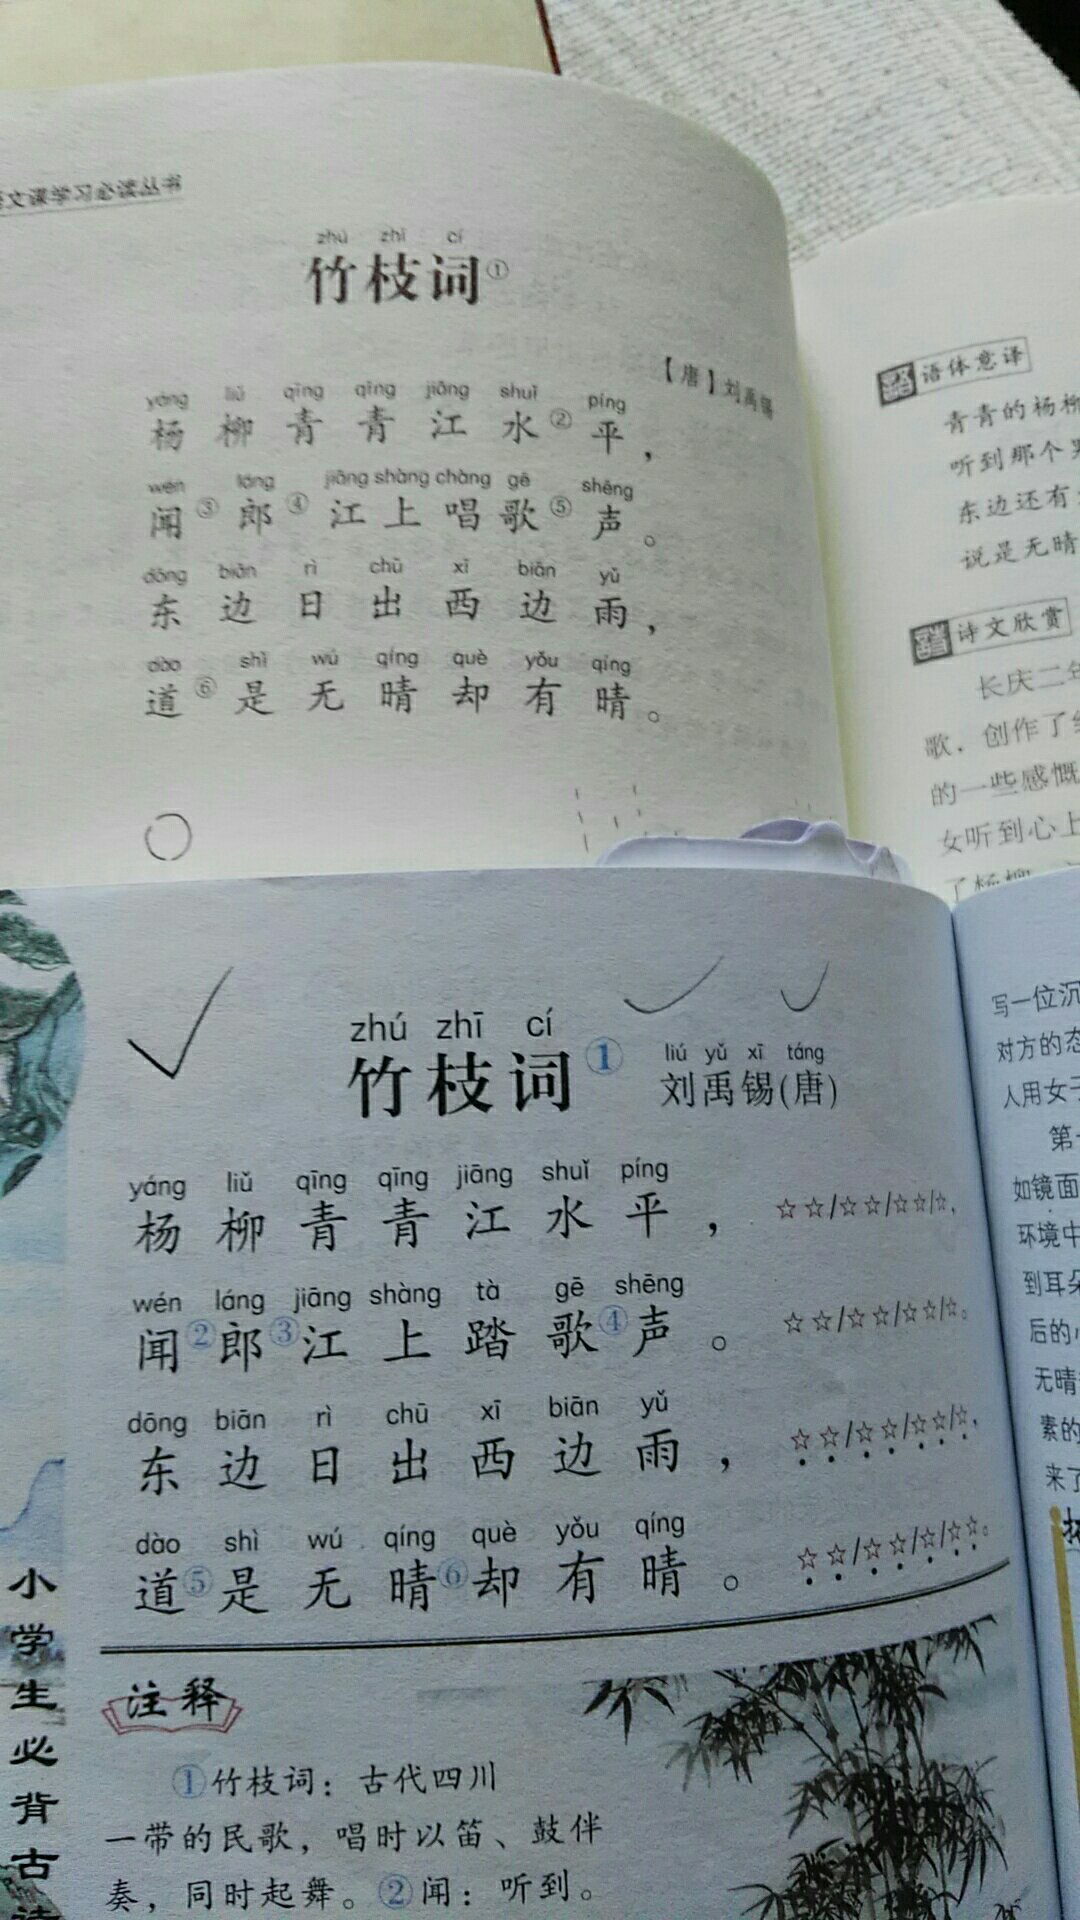 文课学习必读丛书
zhú zhī cí
竹枝词①
【唐】刘禹锡
yáng liǔ qīng qīng jiāng shuǐ píng
杨柳青青江水②平，
wén láng jiāng shàng chàng gē shēng
闻③郎④江上唱歌⑤声。
dōng biān rì chū xī biān yǔ
东边日出西边雨，
dào shì wú qíng què yǒu qíng
道⑥是无晴却有晴。
语体意译
青青的杨柳
听到那个
东边还有
说是无晴
诗文欣赏
长庆二年
歌，创作了
的一些感慨
女听到心上
了杨柳
zhú zhī cí
竹枝词①
liú yǔ xī táng
刘禹锡(唐)
yáng liǔ qīng qīng jiāng shuǐ píng
杨柳青青江水平，☆☆/☆☆/☆☆/☆，
wén láng jiāng shàng tà gē shēng
闻②郎③江上踏歌④声。☆☆/☆☆/☆☆/☆。
dōng biān rì chū xī biān yǔ
东边日出西边雨，☆☆/☆☆/☆☆/☆，
dào shì wú qíng què yǒu qíng
道⑤是无晴⑥却有晴。☆☆/☆☆/☆/☆☆。
注释
①竹枝词：古代四川
一带的民歌，唱时以笛、鼓伴
奏，同时起舞。②闻：听到。
小学生必背古诗
写一位沉
对方的态
人用女子
第一
如镜面
环境中
到耳朵
后的心
无晴
素的
来了